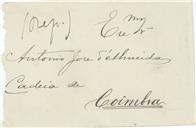 (Resp.) Exmo
Sr.
Antonio José d'Almeida
Cadeia de
Coimbra